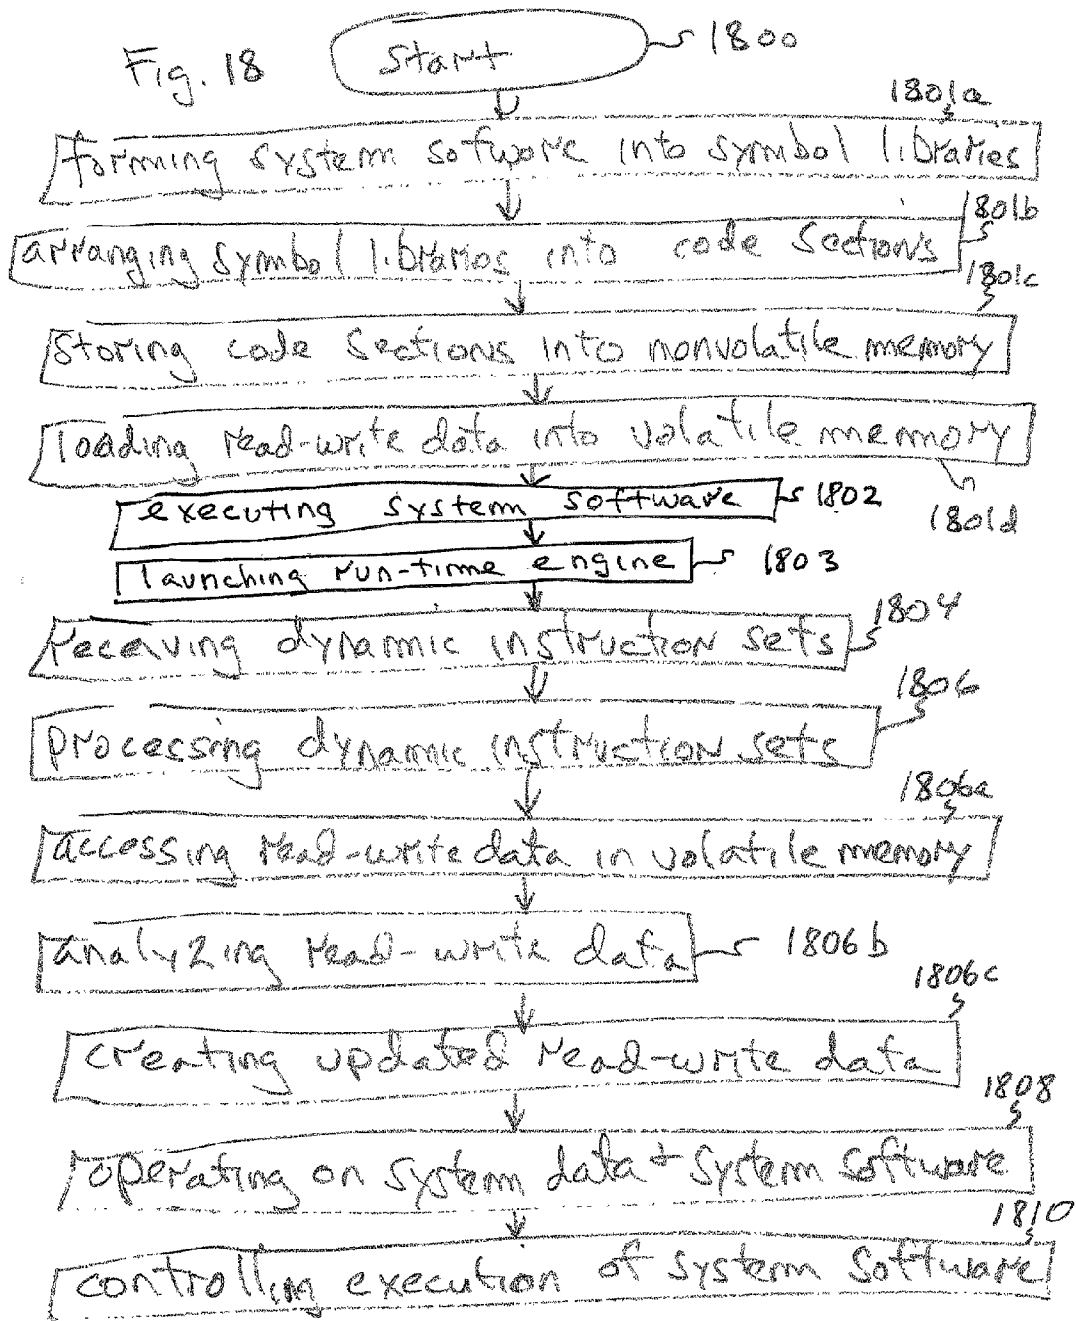 Fig. 18
Start
1800
1801a
forming system sofware into symbol libraries
1801b
arranging symbol libraries into code sections
1801c
storing code sections into nonvolatile memory
loading read-write data into volatile memory
1801d
executing system software 1802
launching run-time engine 1803
1804
receiving dynamic instruction sets
1806
processing dynamic instruction sets
1806a
accessing read-write data in volatile memory
analyzing read-write data 1806b
1806c
creating updated read-write data
1808
operating on system data + system software
1810
controlling execution of system software